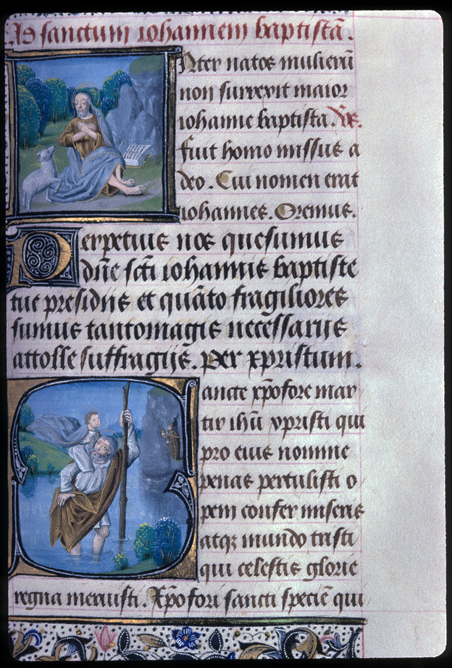 Ad sanctum iohannem baptistā.
Inter natos mulierū
non surrexit maior
iohanne baptista. V̄s.
fuit homo missus a
deo. Cui nomen erat
iohannes. Oremus.
Perpetuis nos quesumus
dn̄e scī iohannis baptiste
tue presidiis et quāto fragiliores
sumus tantomagis necessariis
attolle suffragiis. Per xp̄ristum.
Sancte xp̄ofore mar
tir ihū xpristi qui
pro eius nomine
penas pertulisti o
pem confer miseris
atqz mundo tristi
qui celestis glorie
regna meruisti. Xp̄ofori sancti speciē qui